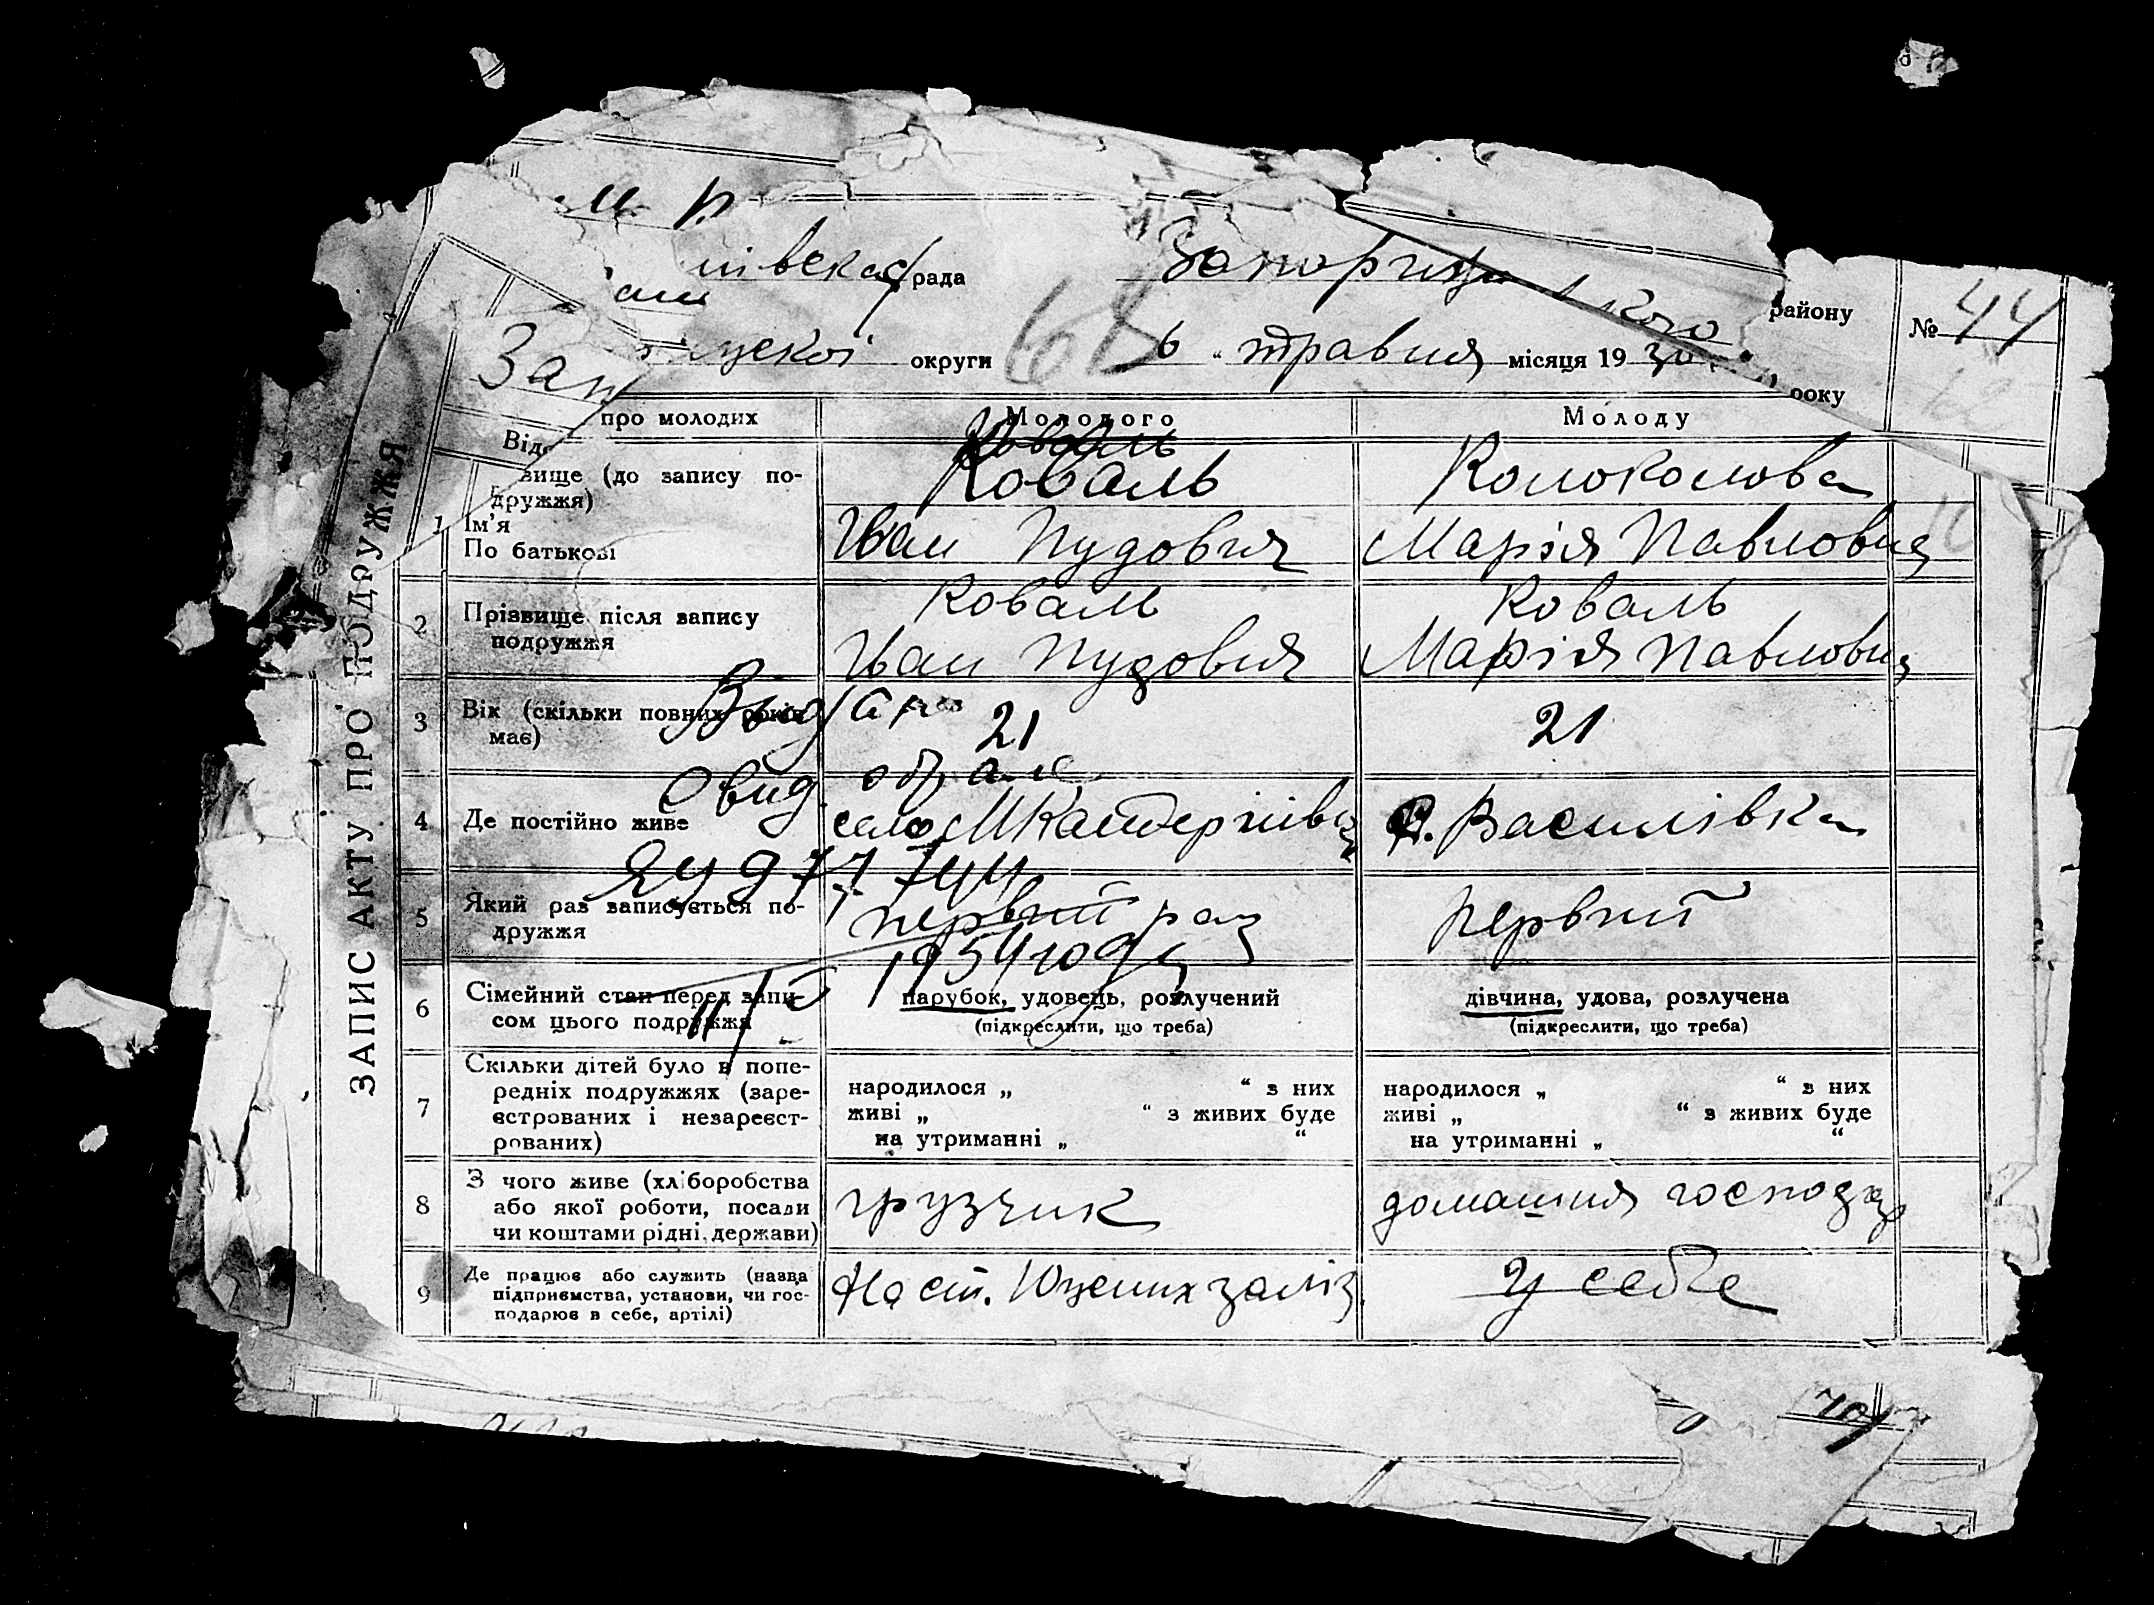 ЗАПИС АКТУ ПРО ПОДРУЖЖЯ
рада
району
№ 44
округи
6 " травня місяця 1930
року
про молодих
Молодого
Молоду
Від
вище (до запису по-
дружжя)
Коваль
Коваль
Колоколова
1
Ім'я
По батькові
Іван Пудович
Марія Павловна
2
Прізвище після запису
подружжя
Коваль
Іван Пудович
Коваль
Марія Павловна
3
Вік (скільки повних років
має)
21
21
Выдано
Свид. о браке
4
Де постійно живе
село
с. Василівка
ЯЧ
5
Який раз записується по-
дружжя
первий раз
первий
1954 года
6
Сімейний стан перед запи-
сом цього подружжя
парубок, удовець, розлучений
(підкреслити, що треба)
дівчина, удова, розлучена
(підкреслити, що треба)
7
Скільки дітей було в попе-
редніх подружжях (заре-
єстрованих і незареєст-
рованих)
народилося „ “ з них
живі „ “ з живих буде
на утриманні „ “
народилося „ “ з них
живі „ “ з живих буде
на утриманні „ “
8
З чого живе (хліборобства
або якої роботи, посади
чи коштами рідні, держави)
грузчик
домашня господар
9
Де працює або служить (назва
підприємства, установи, чи гос-
подарює в себе, артілі)
На ст.
заліз
у себе